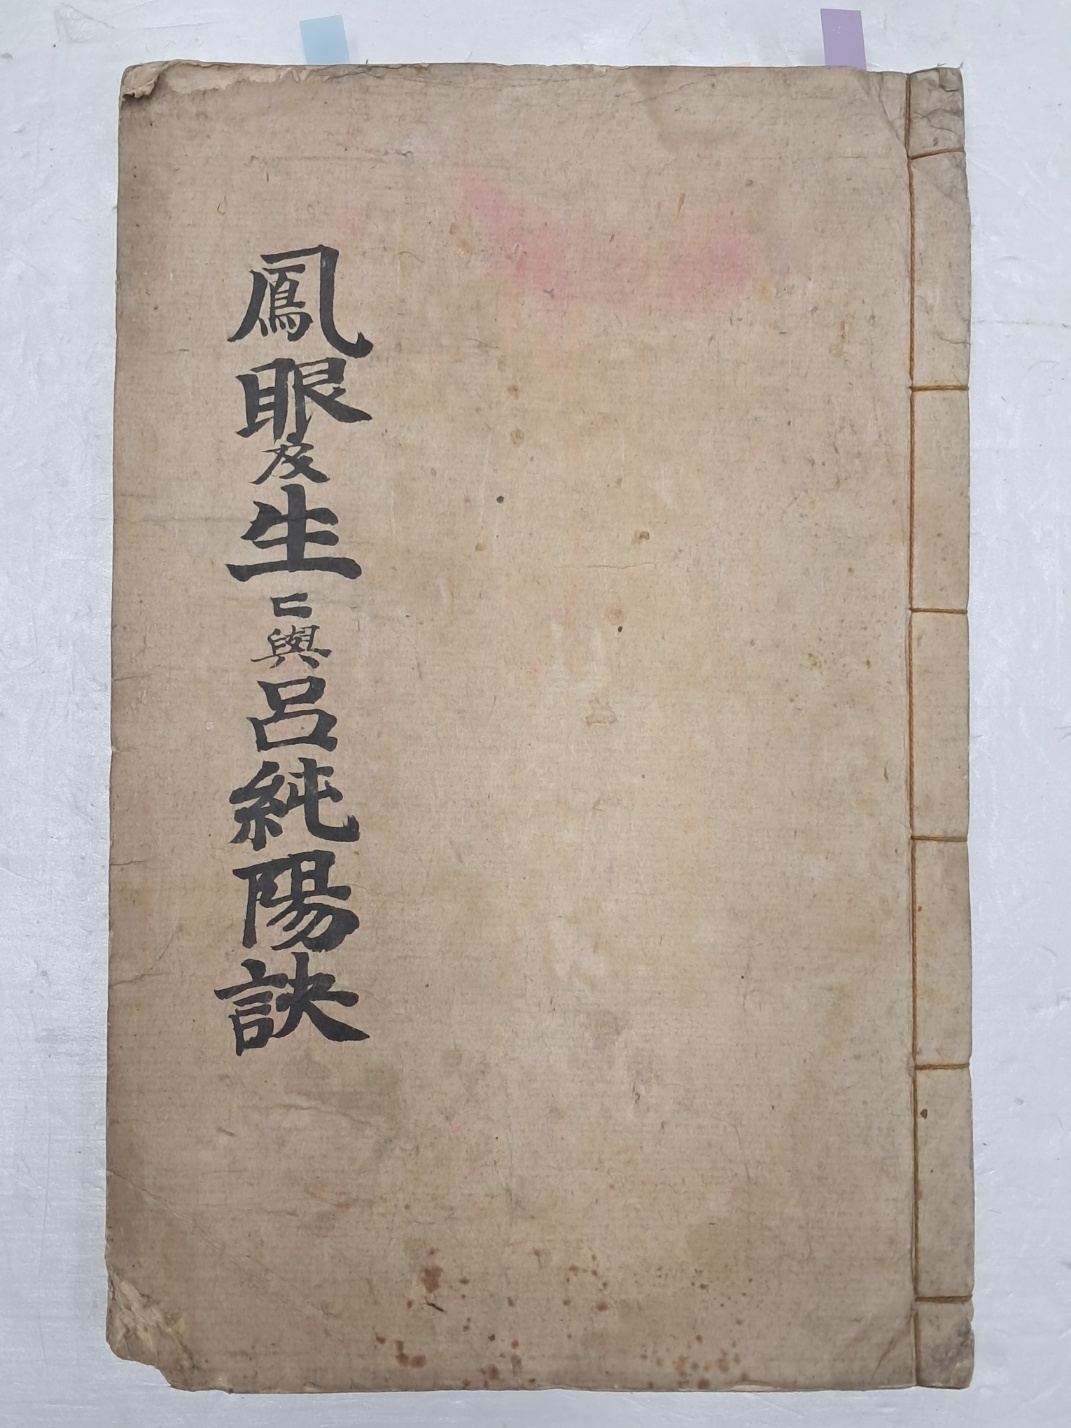 鳳眼及生二與呂純陽訣